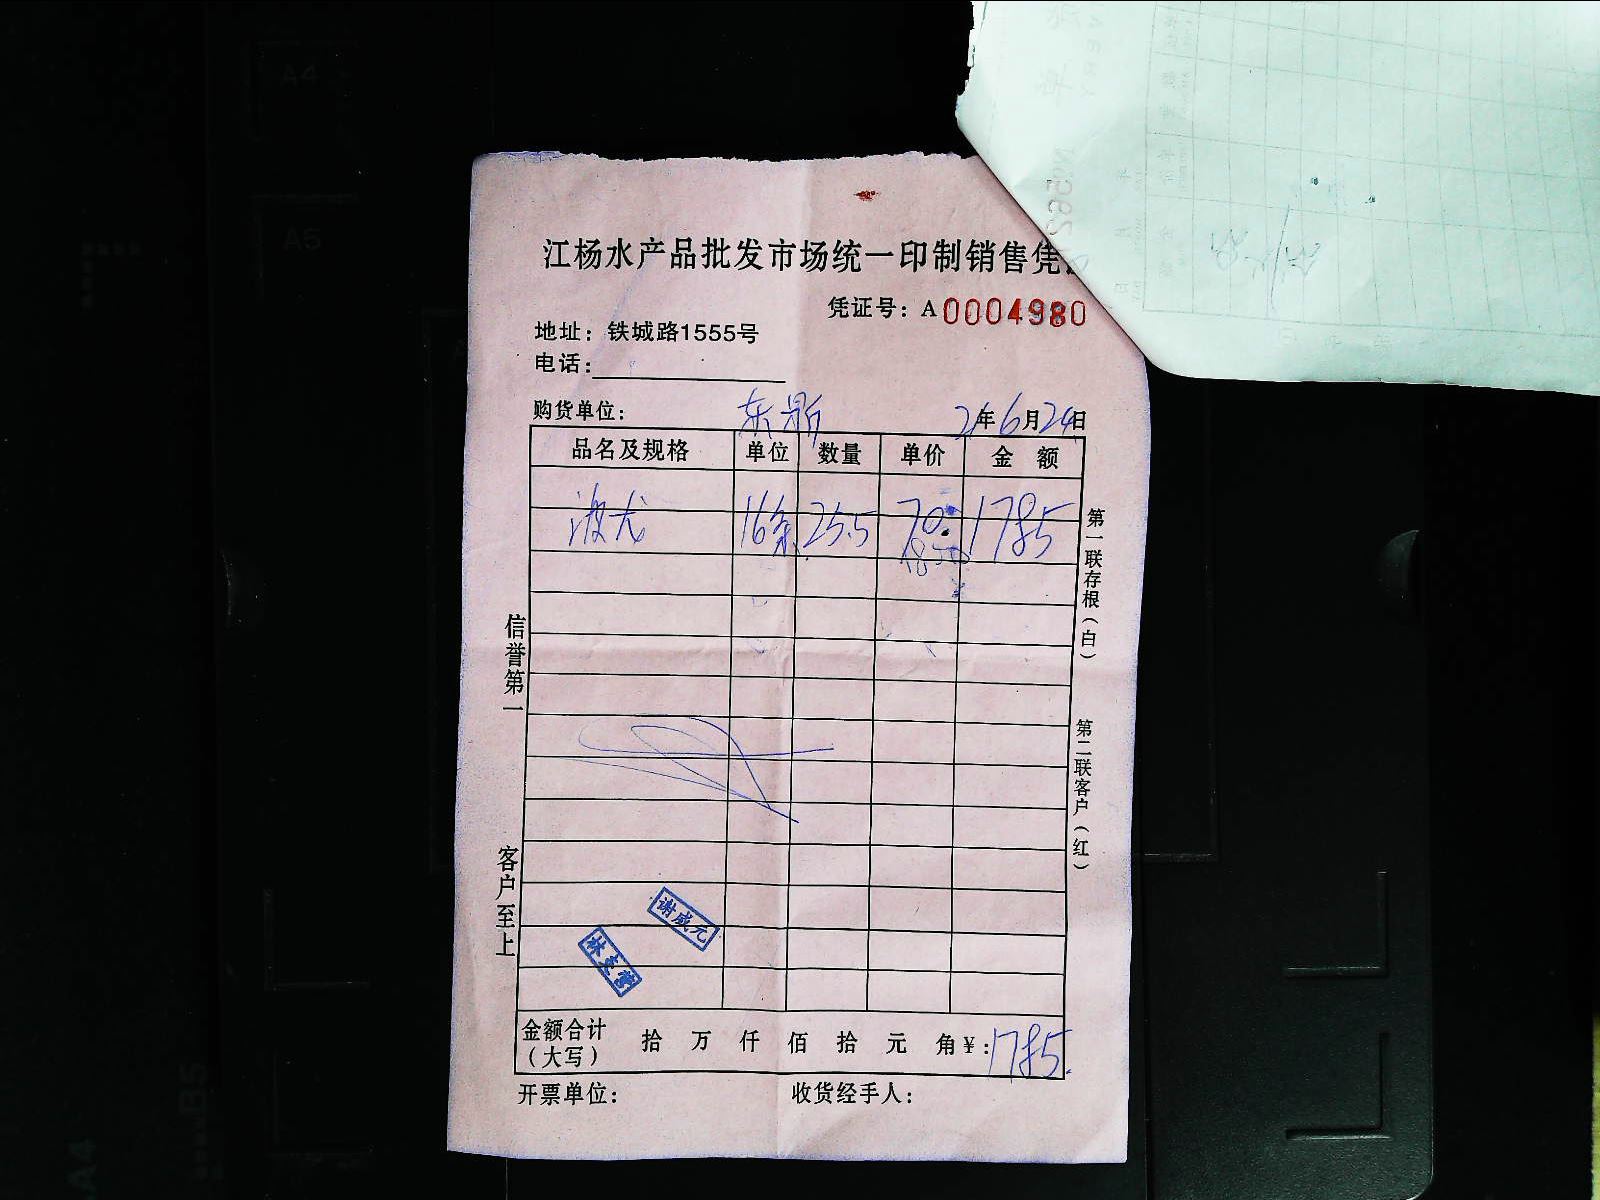 江杨水产品批发市场统一印制销售凭
凭证号：A0004980
地址：铁城路1555号
电话：
购货单位： 东 21年6月24日
品名及规格 单位 数量 单价 金 额
波尤 16条 25.5 70 1785
第一联存根（白）
第二联客户（红）
信誉第一
客户至上
谢成元
金额合计（大写） 拾 万 仟 佰 拾 元 角 ¥：1785.
开票单位： 收货经手人：
A4
A5
B5
A4